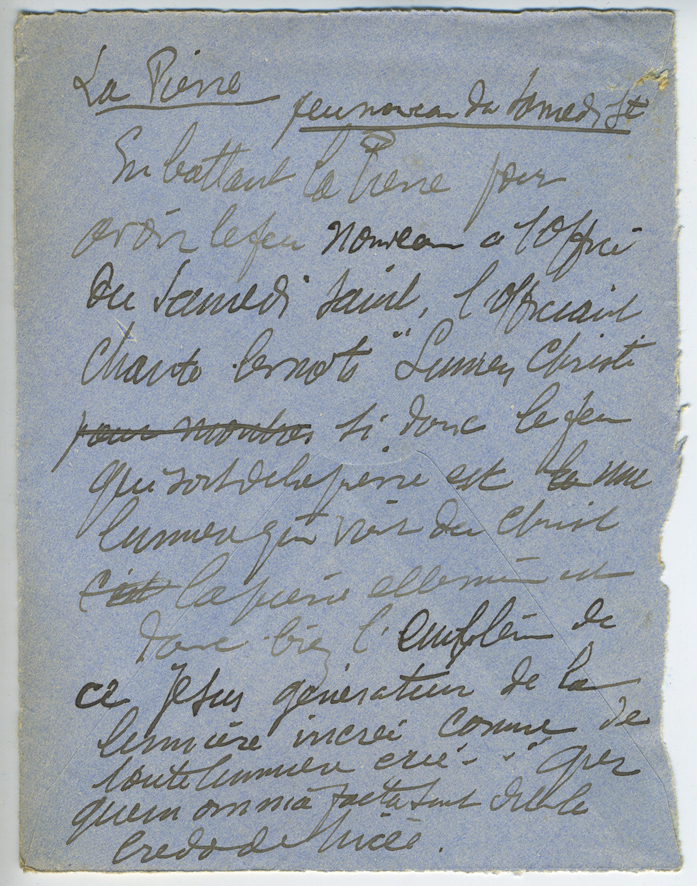 La Pierre
feu nouveau du Samedi St
En battant la Pierre pour
avoir le feu nouveau a l'office
du Samedi Saint, l'officiant
chante les mots "Lumen Christi
pour montrer si donc le feu
qui sort de la pierre est la une
lumière qui vient du Christ
c'est la pierre elle même est
donc bien l'emblème de
ce Jesus générateur de la
lumière increé comme de
toute lumière créé - . . " "per
quem omnia facta sunt dit le
credo de Nicée.